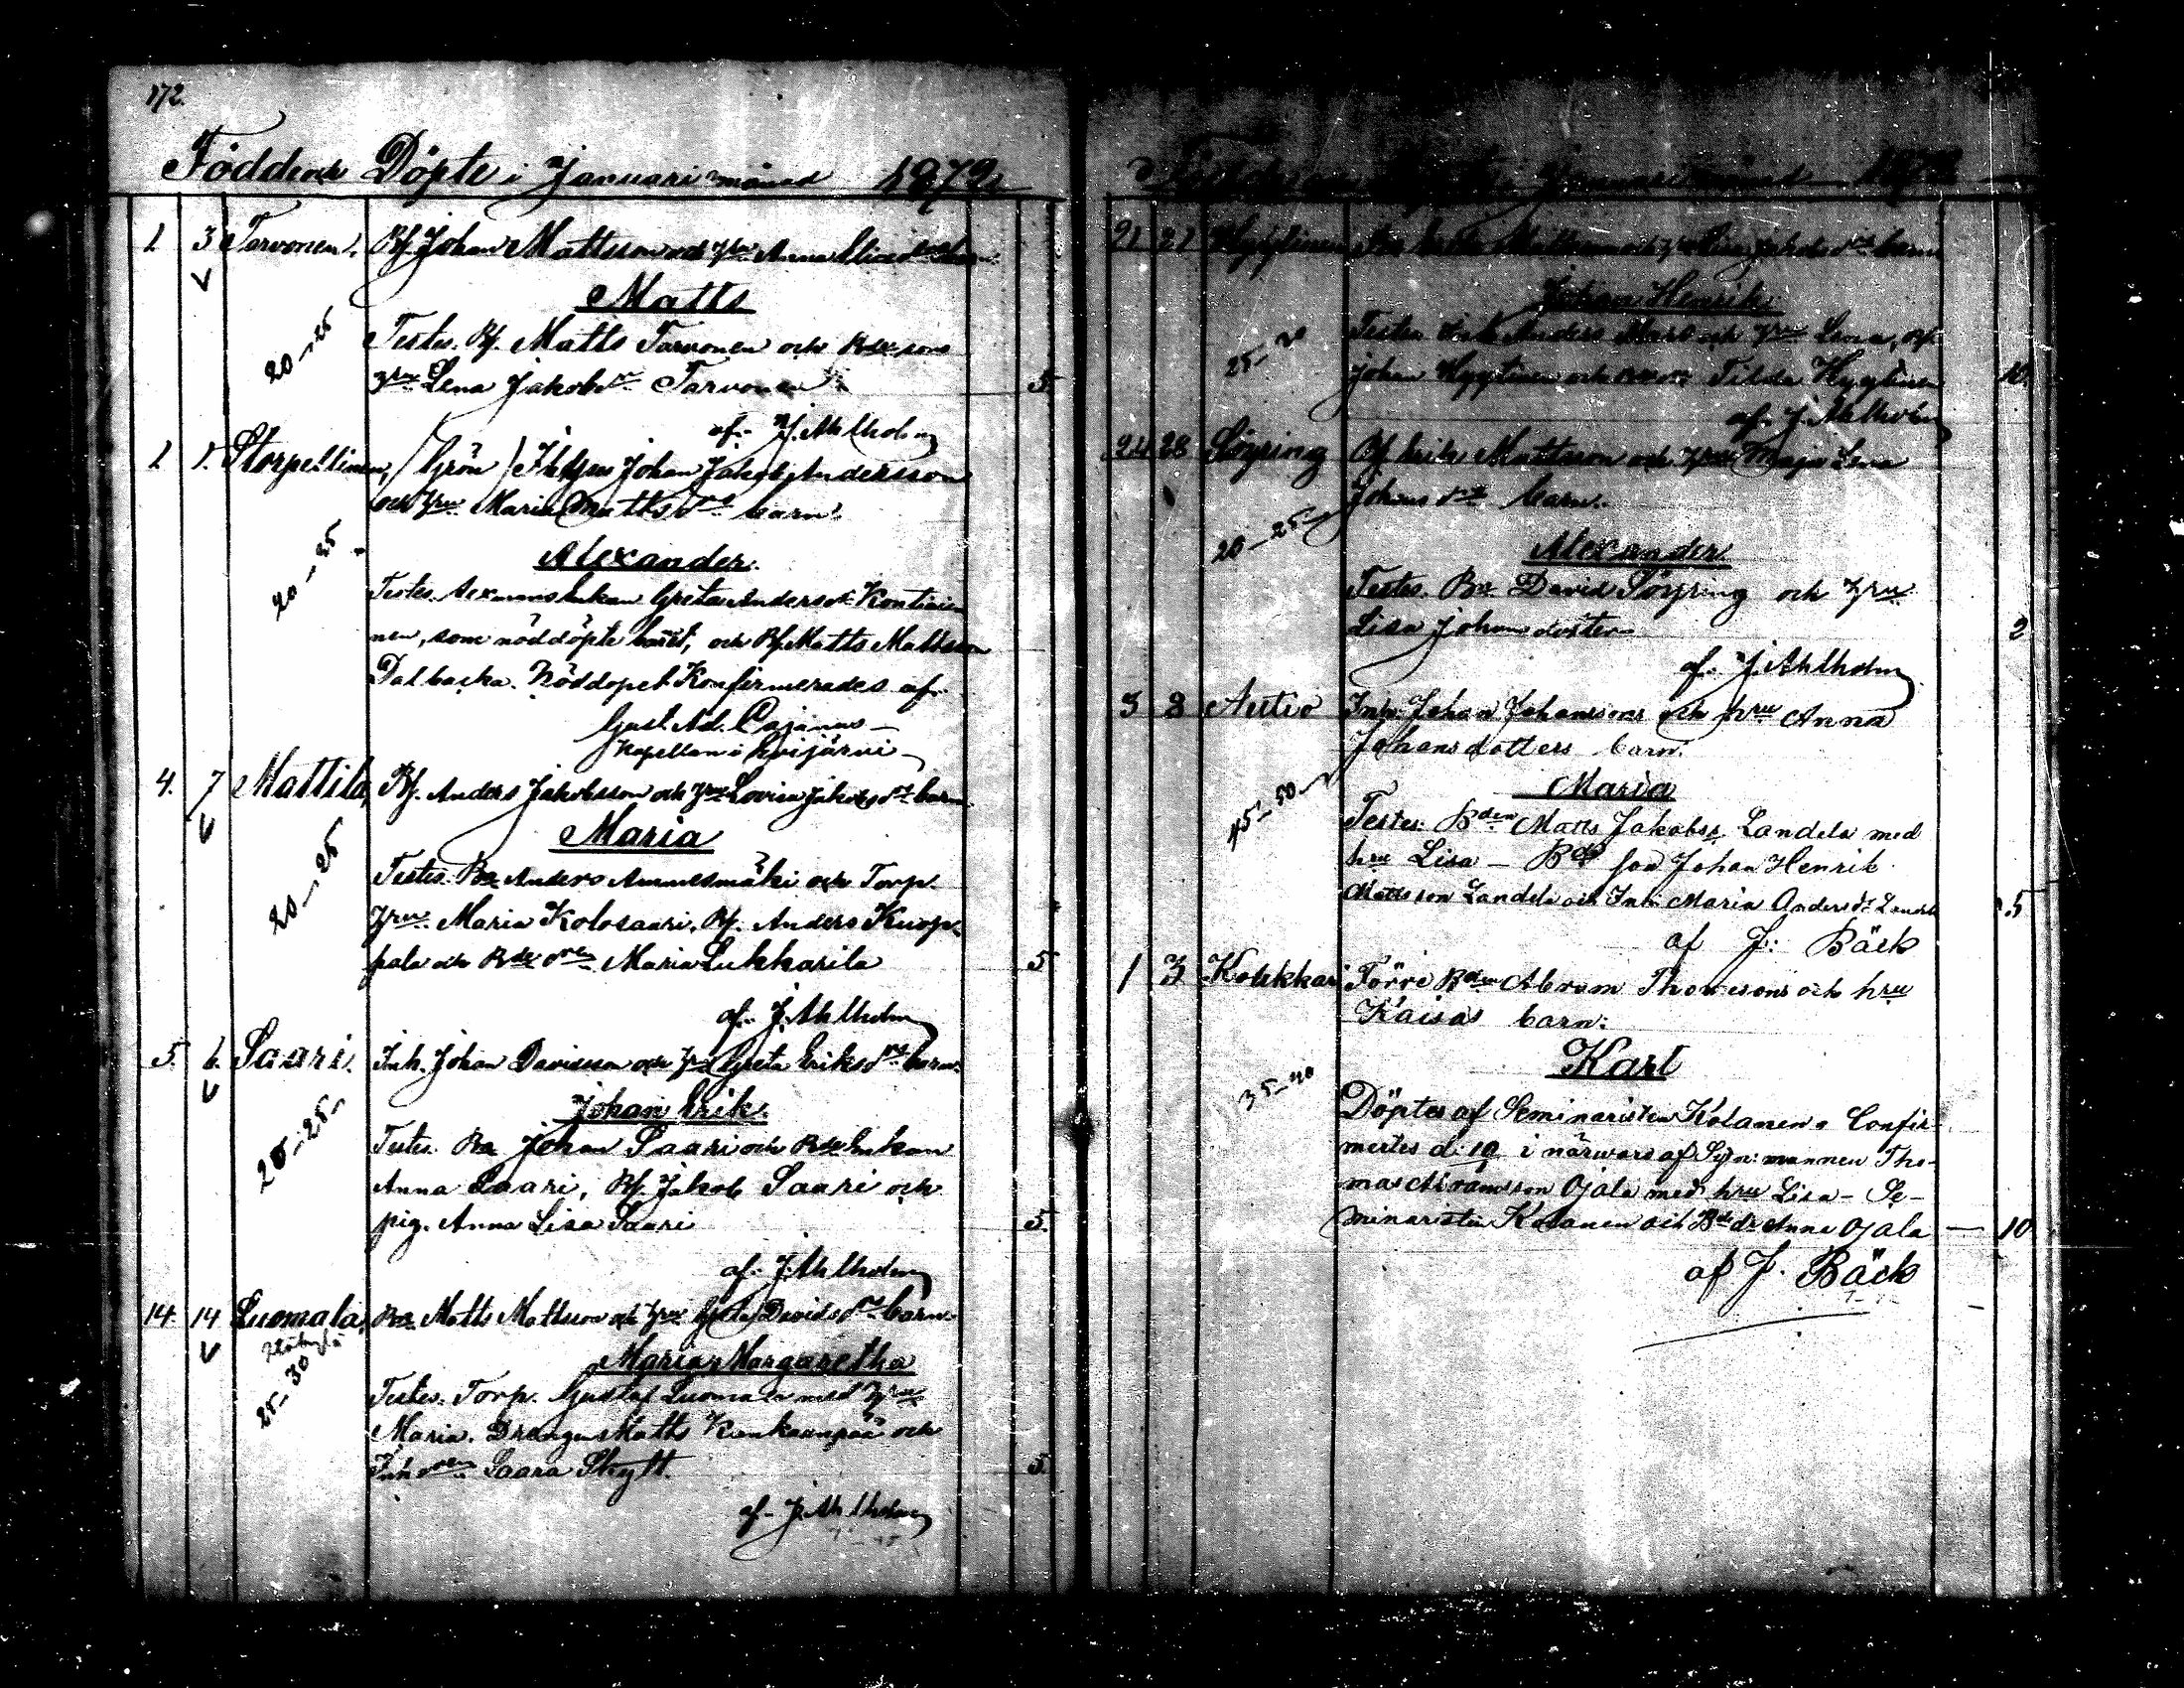 172.
Födde och Döpte i Januari månad 1872
1 3 Tarvonen. Bf. Johan Mattsson och Hru Anna barn.
Matts
20–25
Testes. Bf. Matts Tarvonen och Bdesons
Hru Lena Jakobsdr Tarvonen 5
af. J. Ahlholm
1 1. Storpellinen, (Grön) Johan Jakob Andersson
och Hru Maria Mattsdrs barn.
Alexander.
20–25
Testes. Greta Andersdr Kontiai
nen, som nöddöpte barnet, och Bf. Matts Mattsson
Dalbacka. Nöddopet Konfirmerades af
Gust. Ad. Cajanus
Kapellan i Evijärvi
4. 7 Mattila, Bf. Anders Jakobsson och Hru Lovisa Jakobsdrs barn.
Maria
20–25
Testes. Bde Anders Ammesmäki och Torp.
Hru Maria Kolosaari, Bf. Anders Kuop-
pala och Bdedren Maria Lukkarila 5
af. J. Ahlholm
5. 6. Saari. Inh. Johan Davidsson och Hru Greta Eriksdrs barn.
Johan Erik.
20–25
Testes. Bde Johan Saari och Bdeenkan
Anna Saari, Bf. Jakob Saari och
pig. Anna Lisa Saari 5.
af. J. Ahlholm
14. 14 Luomala, Bde Matts Mattsson och Hru Greta Davidsdrs barn.
Maria Margaretha
25–30
Testes. Torp. Gustaf Luomala med Hru
Maria. Drengen Matts Kankaanpää och
Inhdren Saara Skytt. 5.
af. J. Ahlholm
Januari månad 1872
21 27 Hyytinen Mattsson och Hru Lisa Jakobsdrs barn
Johan Henrik.
Testes Anders och Hru Lena, Bf.
Johan Hyytinen och Tilda Hyytinen 10.
af. J. Ahlholm
24 28 Söyring Bf. Erik Mattsson och Hru Maja Lena
Johansdrs barn.
20–25
Alexander.
Testes. Bde David Söyring och Hru
Lisa Johansdotter 2
af. J. Ahlholm
3 8 Autio Inh. Johan Johanssons och hru Anna
Johansdotters barn.
Maria
45–50
Testes. Bden Matts Jakobss. Landela med
hru Lisa – Bde son Johan Henrik
Mattsson Landela och Inh. Maria Andersdr 5
af J: Bäck
1 3 Kohkkar Förre Bden Abram Thomssons och hru
Kaisas barn:
Karl
35–40
Döptes af Seminaristen Kolanen. Confir-
mertes d. 10 i närvaro af mannen Tho-
mas Abramsson Ojala med hru Lisa – Se-
minaristen Kolanen och Bdedr Anna Ojala – 10
af J. Bäck